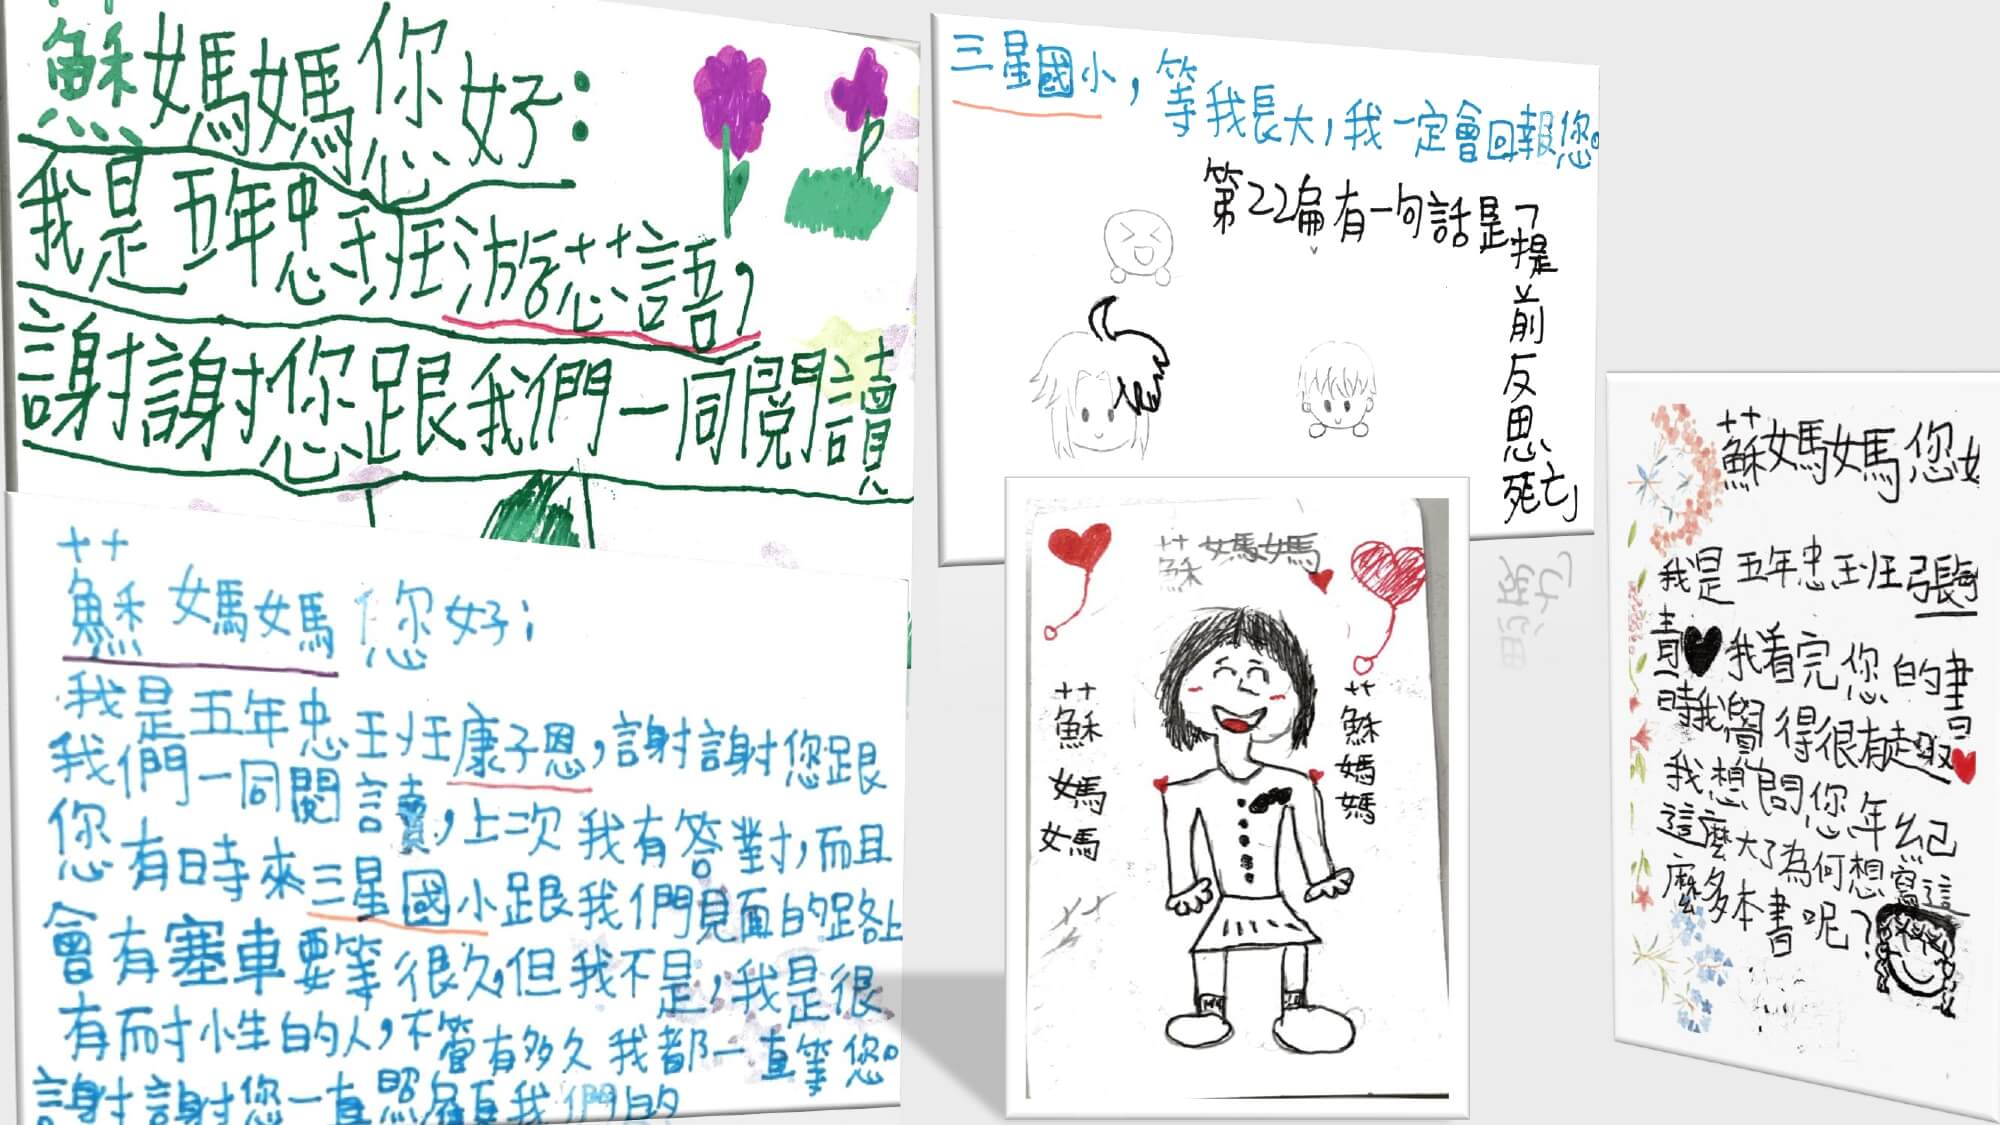 蘇媽媽您好：
我是五年忠班游芯語，
謝謝您跟我們一同閱讀
蘇媽媽您好；
我是五年忠班康子恩，謝謝您跟
我們一同閱讀，上次我有答對，而且
您有時來三星國小跟我們見面的路上
會有塞車要等很久，但我不是，我是很
有耐心性的人，不管有多久我都一直等您。
謝謝您一直照顧我們的
三星國小，
等我長大，我一定會回報您。
第22扁有一句話是「提
前
反
思
死亡」
蘇媽媽
蘇媽媽
蘇媽媽
蘇媽媽您
我是五年忠班張
青 我看完您的書
時我覺得很有趣
我想問您年紀
這麼大了為何想寫這
麼多本書呢？